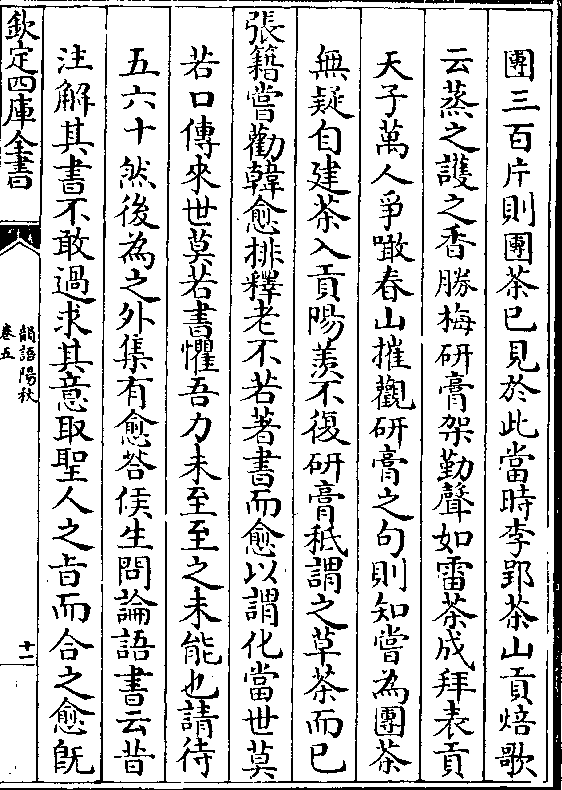 團三百片則團茶已見於此當時李郢茶山貢焙歌
云蒸之䕶之香勝梅研膏架勤聲如雷茶成拜表貢
天子萬人爭噉春山摧觀研膏之句則知嘗為團茶
無疑自建茶入貢陽羨不復研膏秪謂之草茶而已
張籍嘗勸韓愈排釋老不若著書而愈以謂化當世莫
若口傳來世莫若書懼吾力未至至之未能也請待
五六十然後為之外集有愈荅侯生問論語書云昔
注解其書不敢過求其意取聖人之㫖而合之愈既
欽定四庫全書
韻語陽秋
卷五
十二